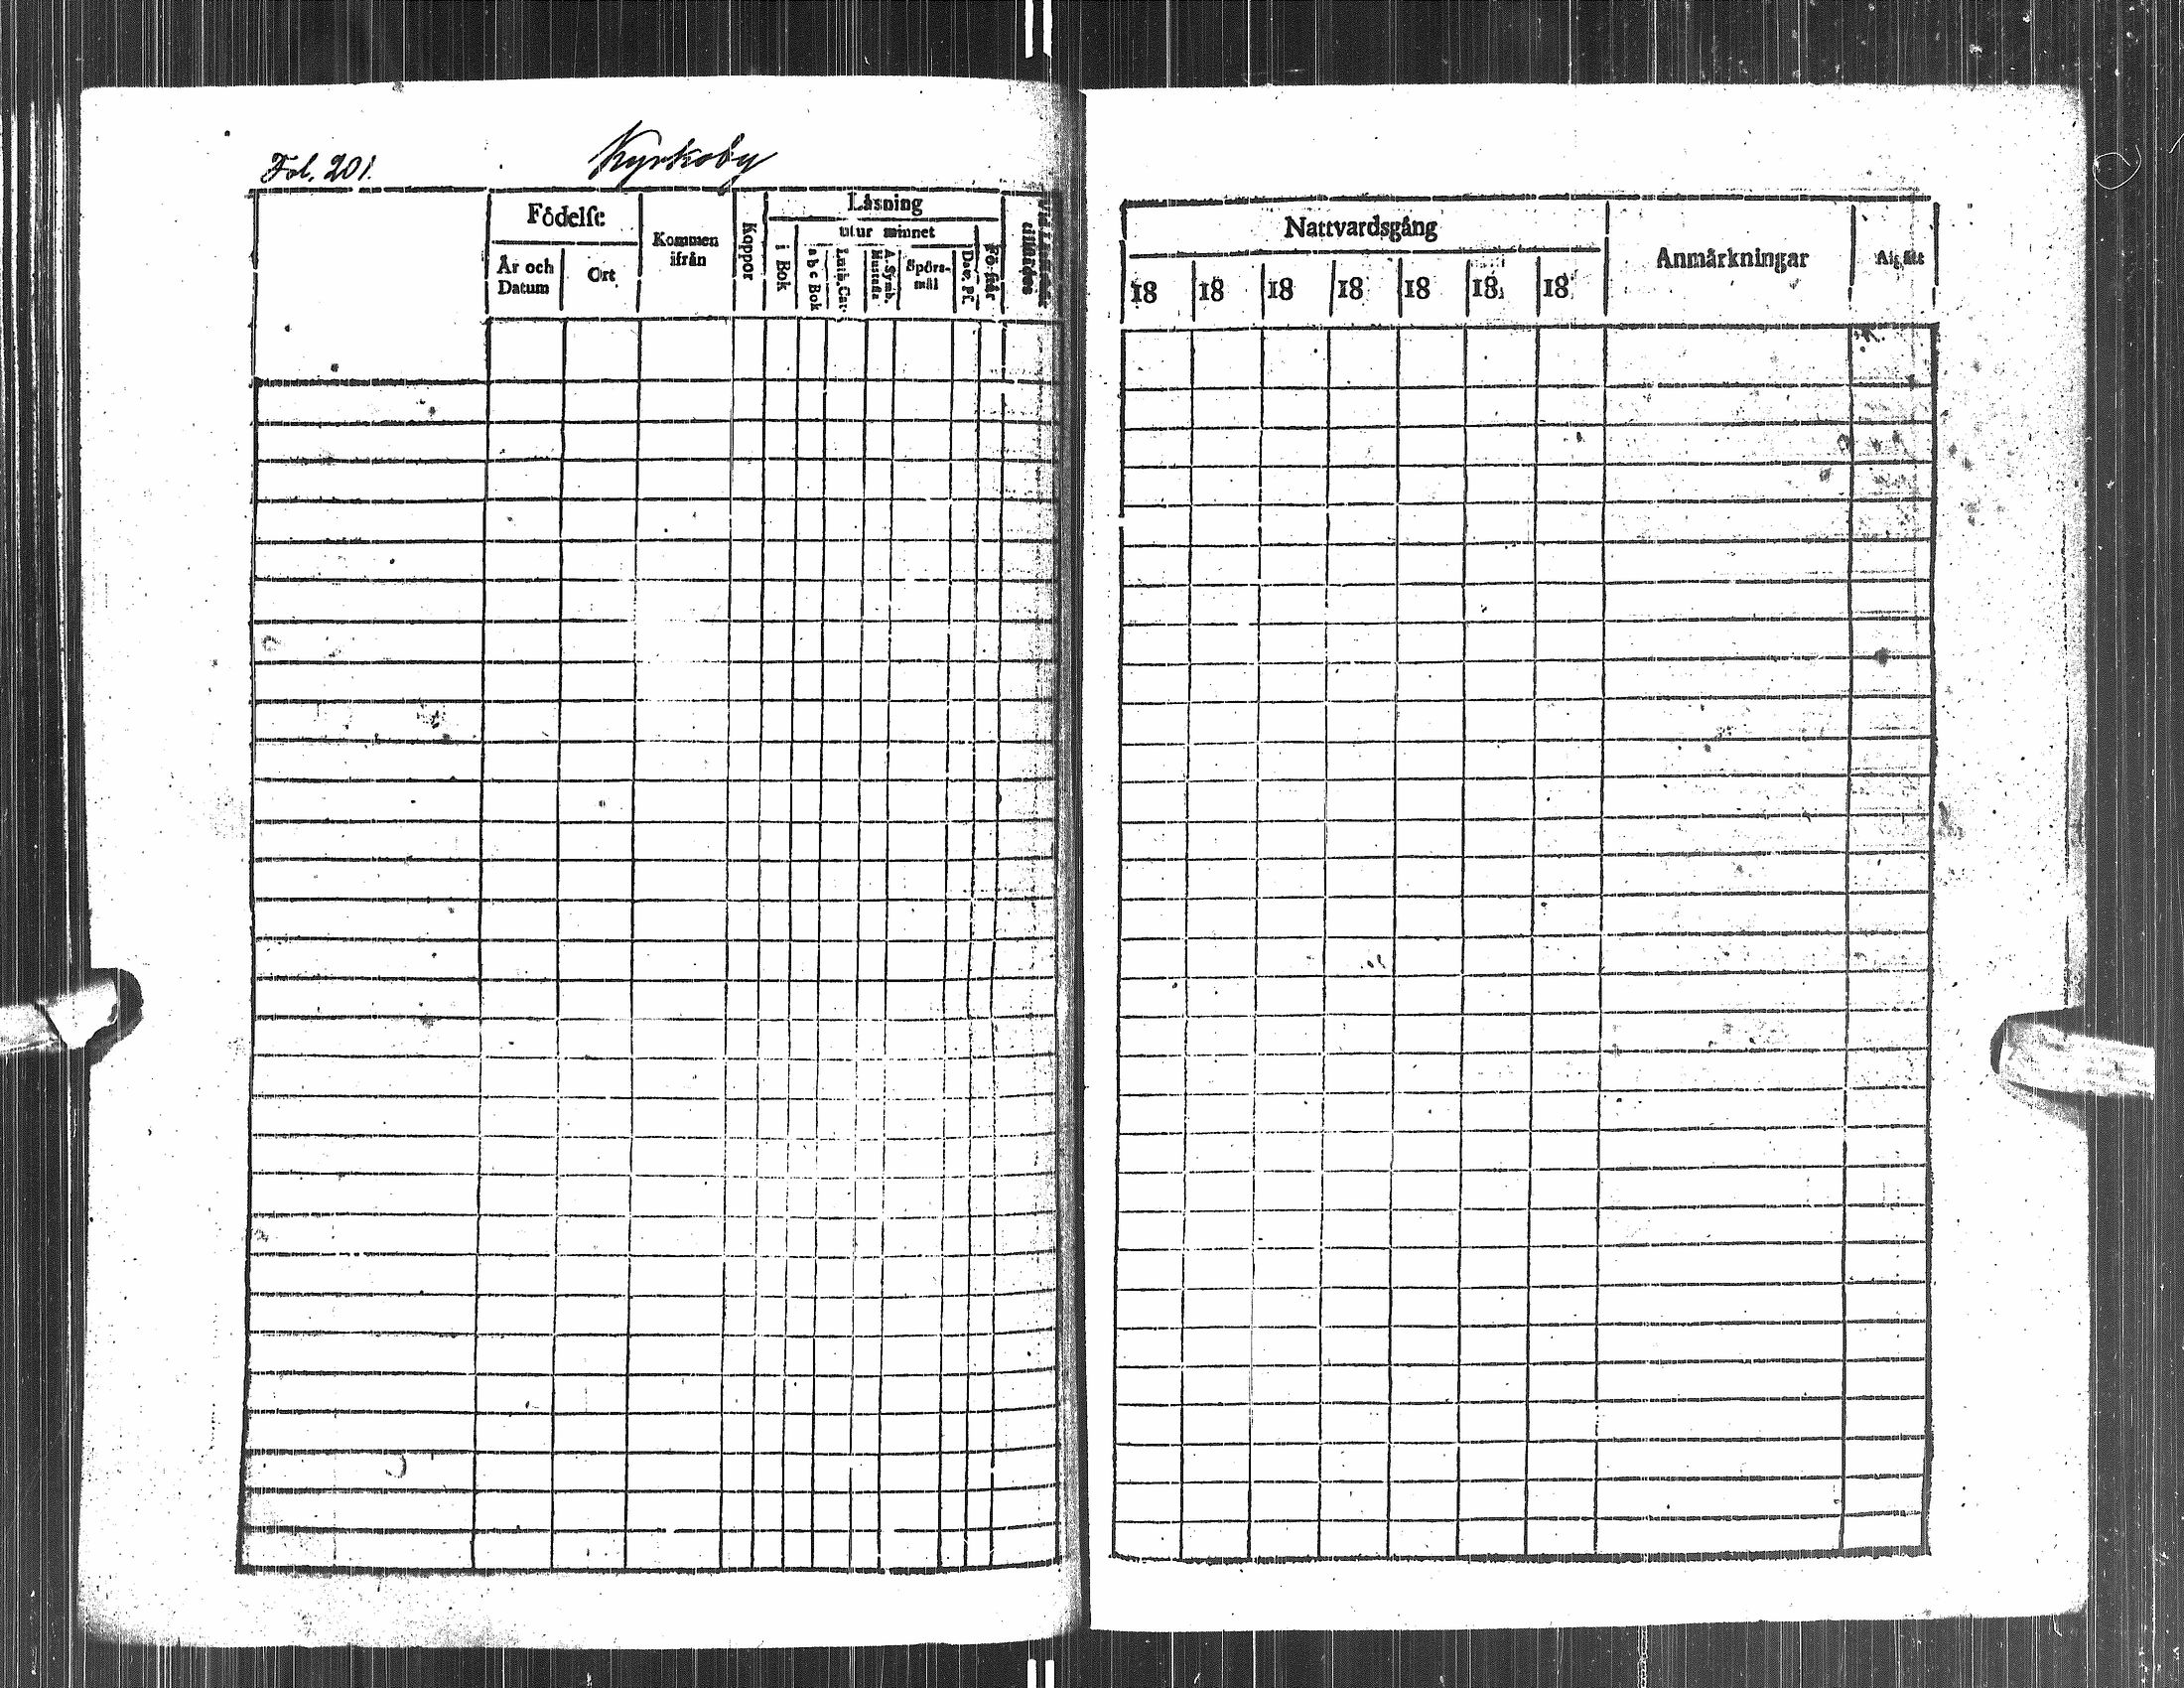 Fol. 201.
Kyrkoby
Födelse
År och Datum
Ort
Kommen ifrån
Koppor
Läsning
i Bok
utur minnet
a b c Bok
Luth. Cat.
A. Symb.
Spörs-
mål
Dav. Ps.
Förstår
Nattvardsgång
18
18
18
18
18
18
18
Anmärkningar